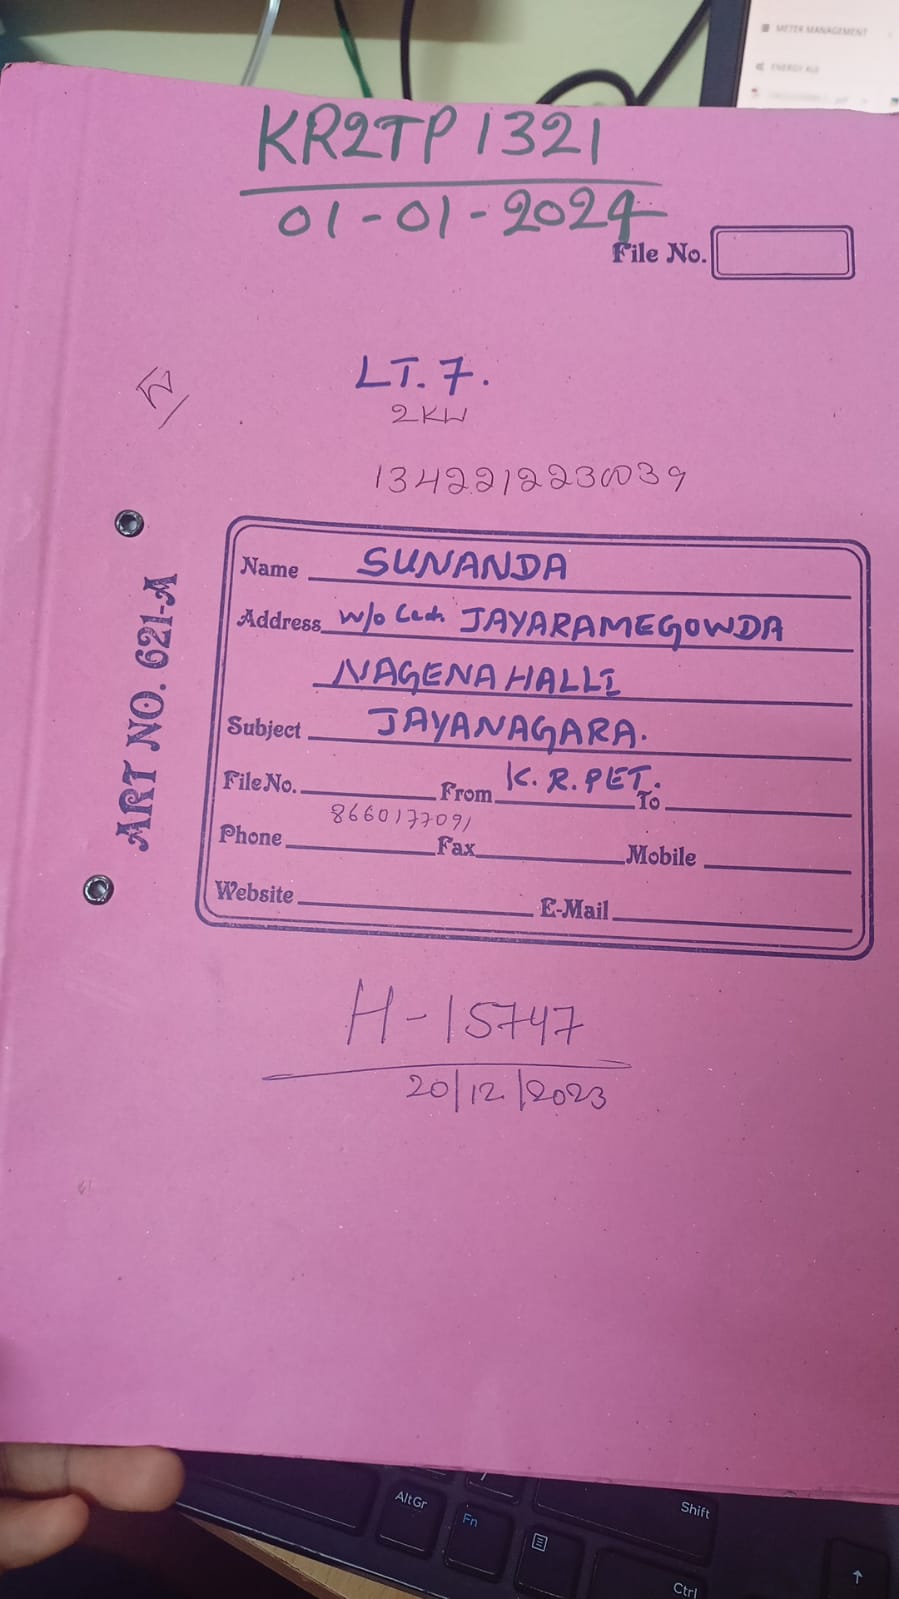 METER MANAGEMENT
KR2TP 1321
01-01-2024
File No.
LT. 7.
2KW
1342212230039
Name SUNANDA
Address W/o Late JAYARAMEGOWDA
NAGENAHALLI
Subject JAYANAGARA.
File No. From K.R.PET. To
8660177091
Phone Fax Mobile
Website E-Mail
ART NO. 621-A
H-15747
20/12/2023
Alt Gr
Fn
Shift
Ctrl